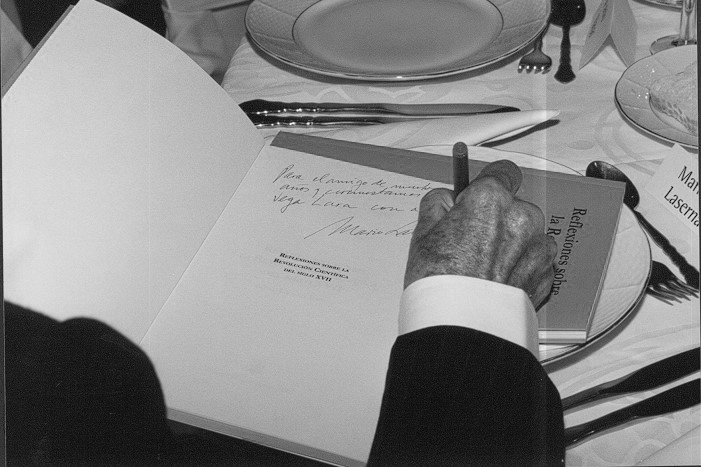 Para el amigo de muchos
años y circunstancias
Vega Lara con a
Mario La
REFLEXIONES SOBRE LA
REVOLUCIÓN CIENTÍFICA
DEL SIGLO XVII
Reflexiones sobre
la R
Mari
Laserna